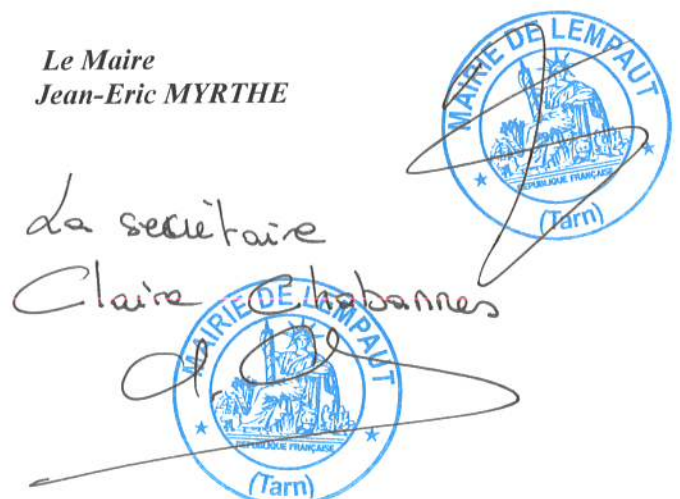 Le Maire
Jean-Eric MYRTHE
MAIRIE DE LEMPAUT
REPUBLIQUE FRANÇAISE
(Tarn)
La secrétaire
Claire Chabannes
MAIRIE DE LEMPAUT
REPUBLIQUE FRANÇAISE
(Tarn)